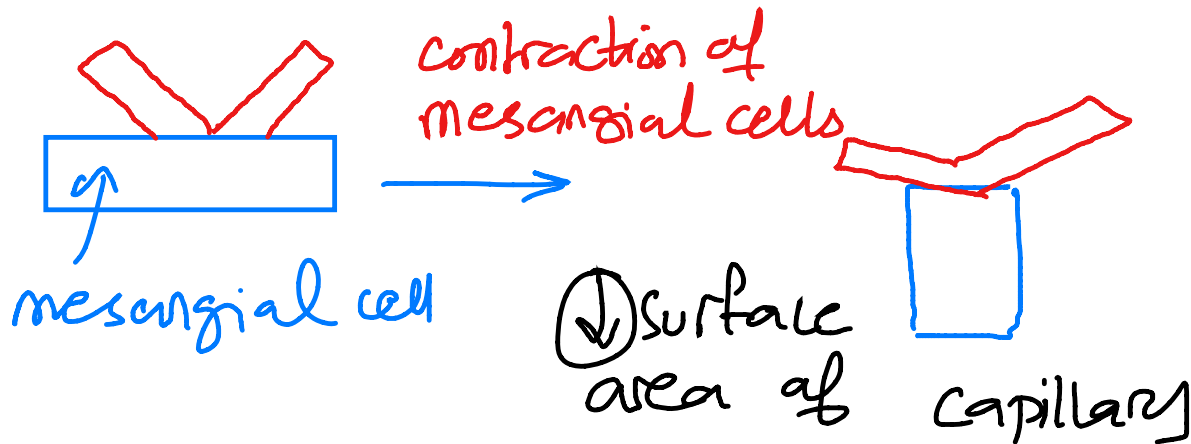 contraction of
mesangial cells
mesangial cell
↓ surface
area of capillary